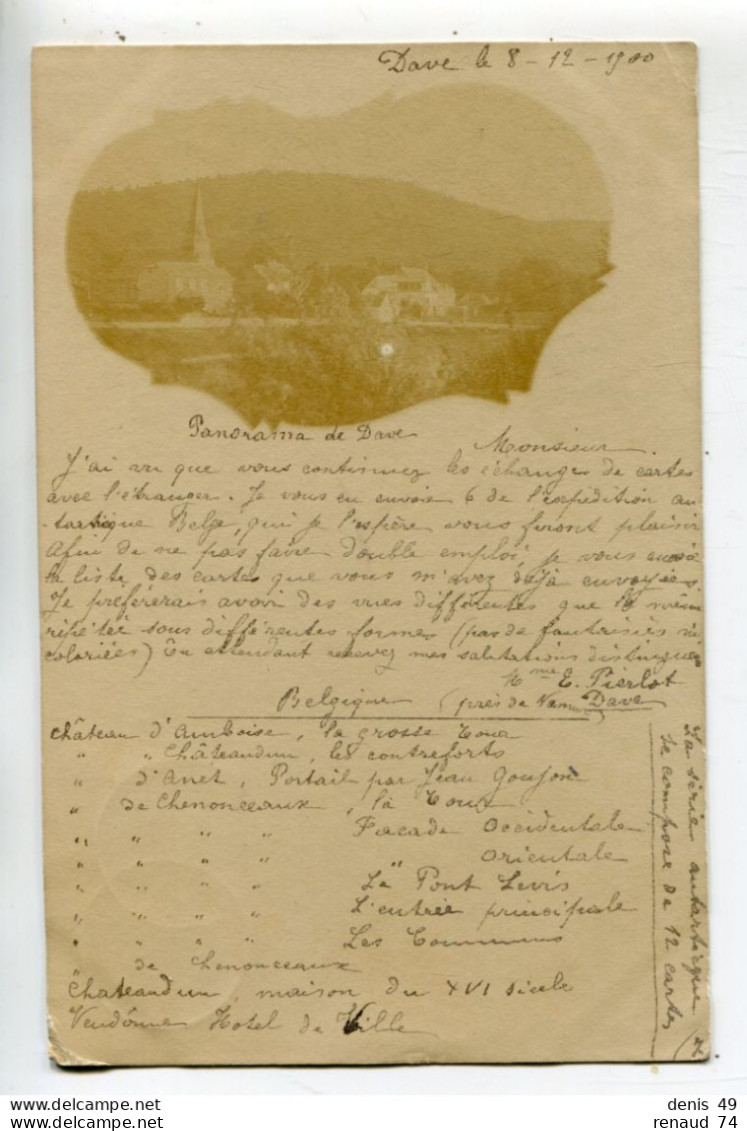 Dave le 8-12-1900
Panorama de Dave
Monsieur
J'ai vu que vous continuez les échanges de cartes
avec l'étranger. Je vous en envoie 6 de l'expédition an-
tartique Belge, qui je l'espère vous feront plaisir
Afin de ne pas faire double emploi, je vous envoie
la liste des cartes que vous m'avez déjà envoyées.
Je préférerais avoir des vues différentes que la même
répétée sous différentes formes (pas de fantaisies ni
coloriées) En attendant recevez mes salutations distinguées
Mme E. Pierlot
Belgique (près de Namur) Dave
château d'Amboise, la grosse Tour
" " Châteaudun, les contreforts
" d'Anet, Portail par Jean Goujon
" de Chenonceaux, la Tour
" " " " Facade Occidentale
" " " " " Orientale
" " " " Le Pont Levis
" " " " L'entrée principale
" " " " Les Communs
" de Chenonceaux
Chateaudun, maison du XVI siècle
Vendôme Hotel de Ville
La série antarctique
se compose de 12 cartes
denis 49
www.delcampe.net
renaud 74